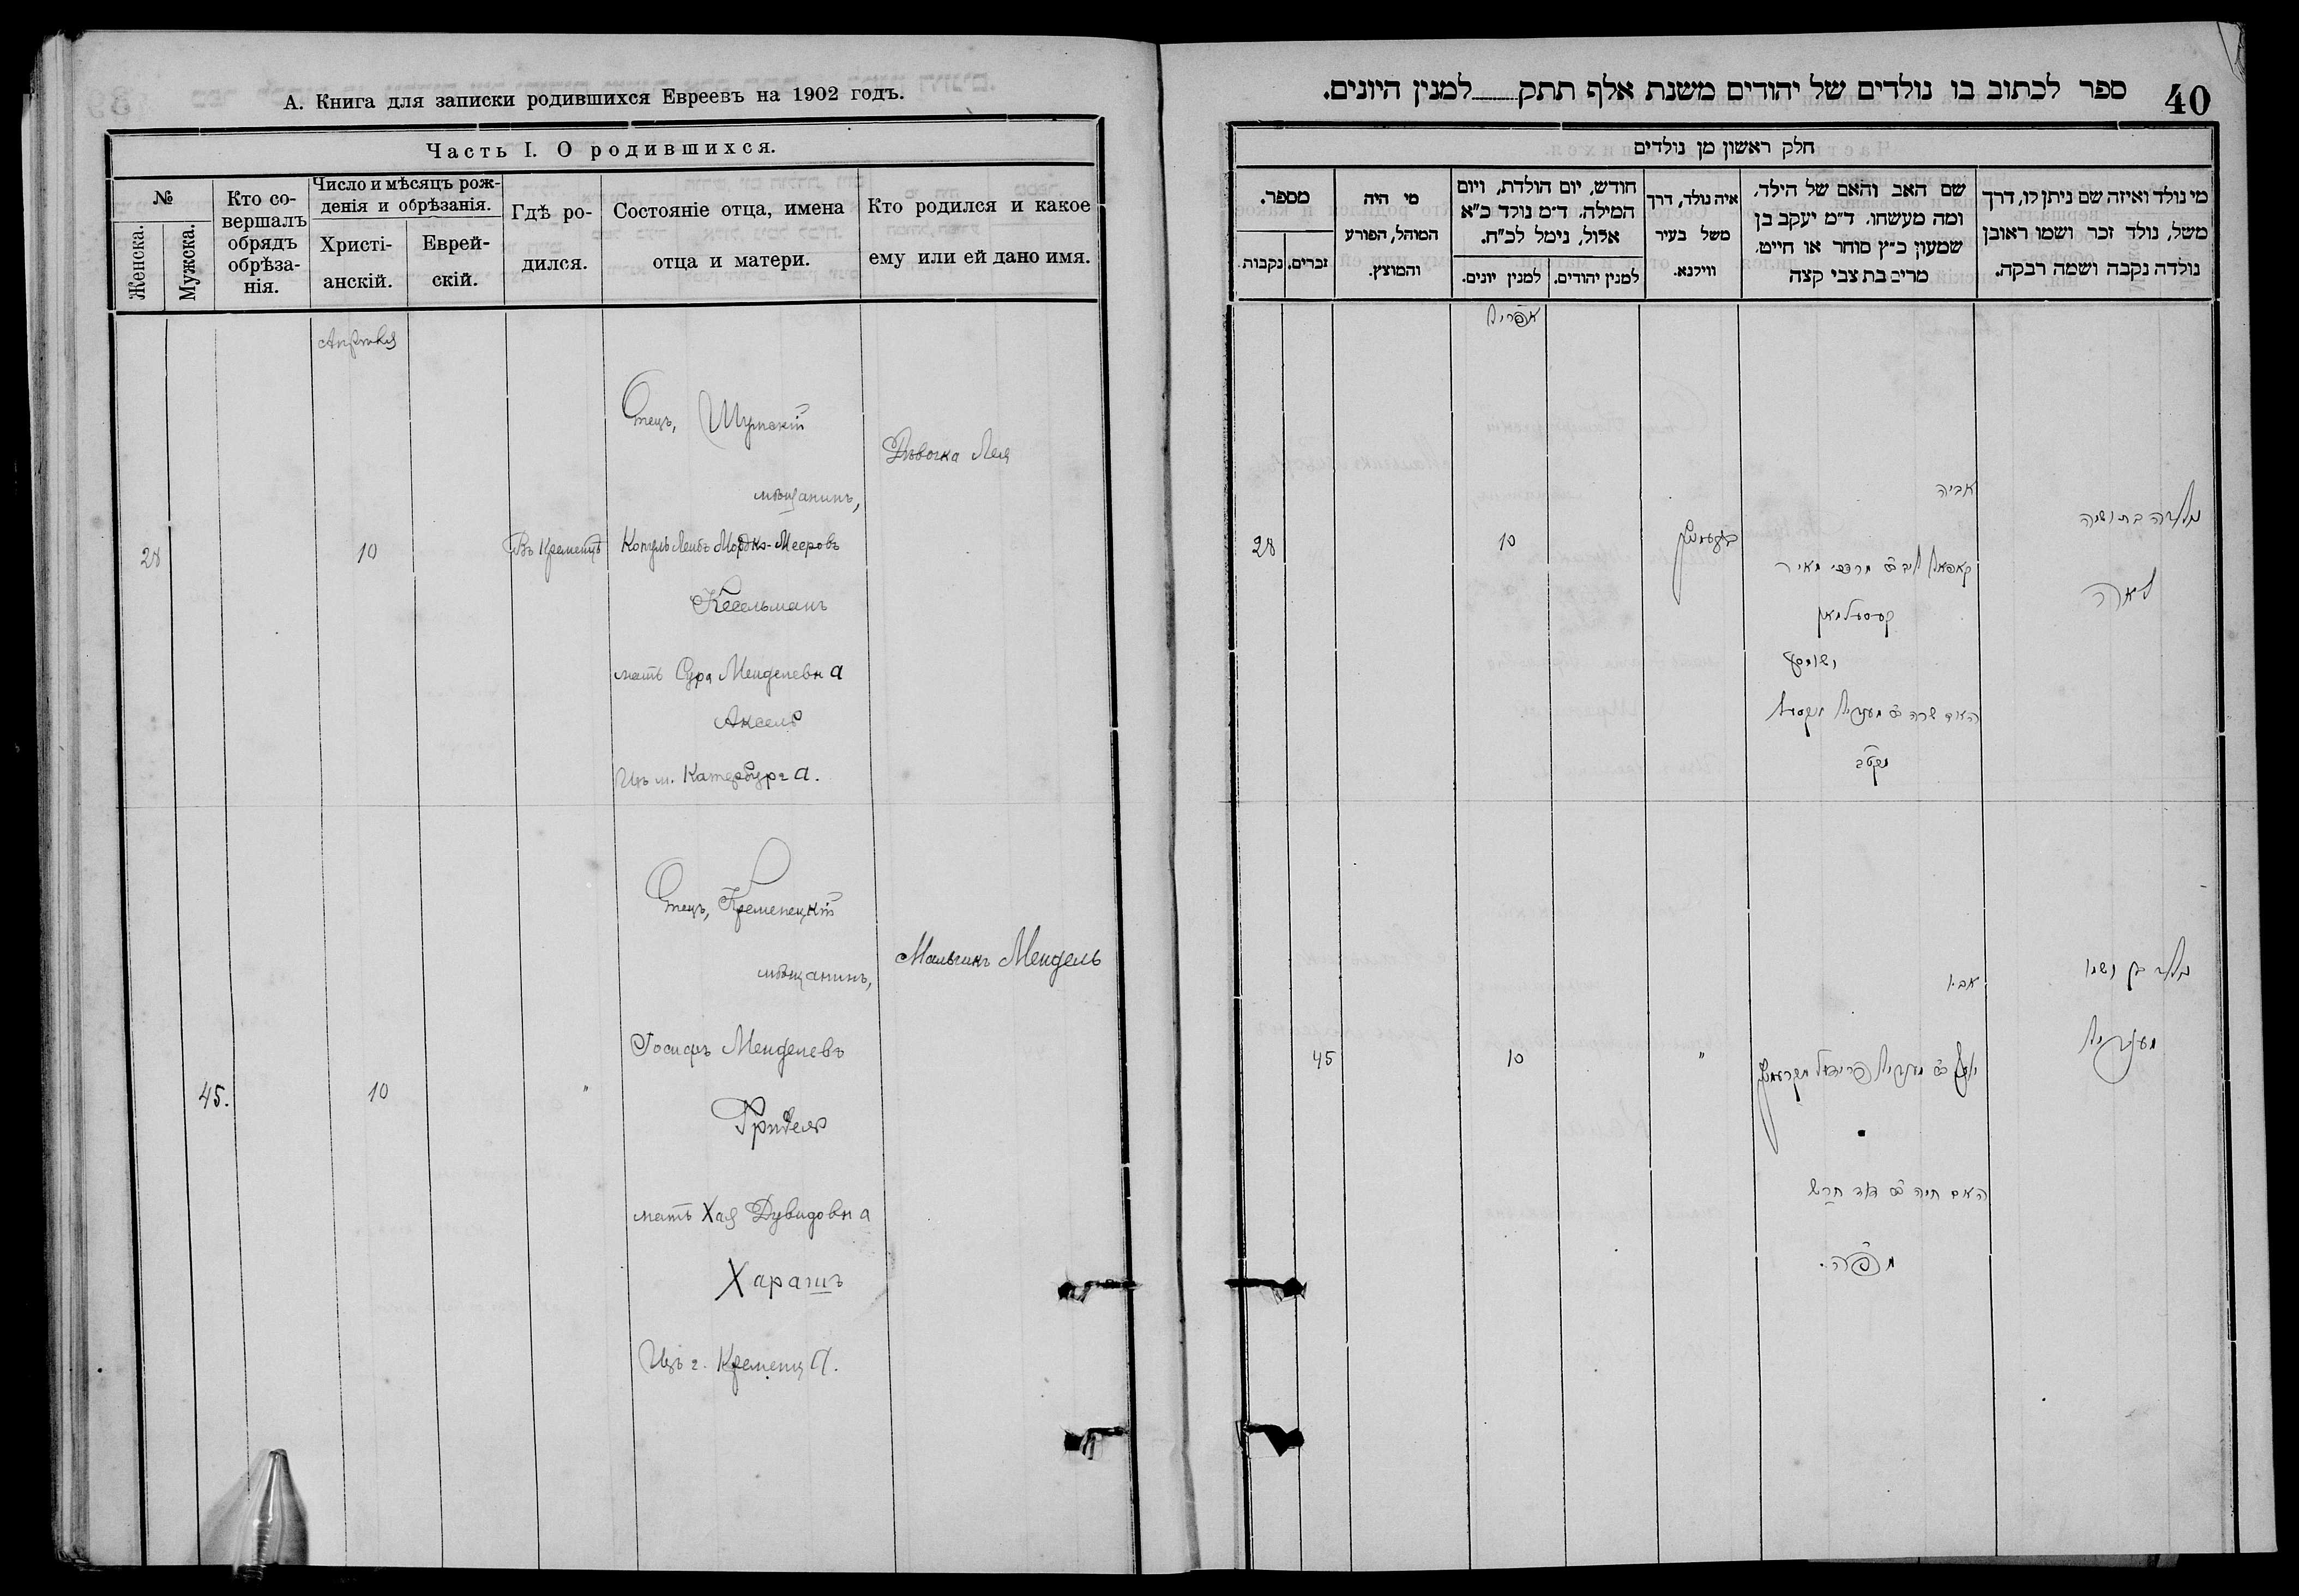 А. Книга для записки родившихся Евреевъ на 1902 годъ.
Часть I. О родившихся.
№
Женска.
Мужска.
Кто со-
вершалъ
обрядъ
обрѣза-
нія.
Число и мѣсяцъ рож-
денія и обрѣзанія.
Христі-
анскій.
Еврей-
скій.
Гдѣ ро-
дился.
Состояніе отца, имена
отца и матери.
Кто родился и какое
ему или ей дано имя.
Апрѣля
28
10
Въ Кременцѣ
Отецъ, Шумскій
мѣщанинъ,
Копуль Лейбъ Мордко-Мееровъ
Кесельманъ
мать Сура Менделевна
Аксель
Изъ м. Катербурга.
Дѣвочка Лея
45.
10
"
Отецъ, Кременецкій
мѣщанинъ,
Іосифъ Менделевъ
Фридель
мать Хая Дувидовна
Харашъ
Изъ г. Кременца.
Мальчикъ Мендель
40
ספר לכתוב בו נולדים של יהודים משנת אלף תתק למנין היונים.
חלק ראשון מן נולדים
מי נולד ואיזה שם ניתן לו, דרך
משל, נולד זכר ושמו ראובן
נולדה נקבה ושמה רבקה.
שם האב והאם של הילד,
ומה מעשהו. ד״מ יעקב בן
שמעון כ״ץ סוחר או חייט.
מרים בת צבי קצה
איה נולד, דרך
משל בעיר
ווילנא.
חודש, יום הולדת, ויום
המילה. ד״מ נולד כ״א
אלול, נימל לכ״ח.
למנין יהודים.
למנין יונים.
מי היה
המוהל, הפורע
והמוצץ.
מספר.
זכרים.
נקבות.
אפריל
נולדה בת ושמה
לאה
אביה
קאפאל ליב ב״ר מרדכי מאיר
קעסעלמאן
האם שרה ב״ר מענדיל אקסעל
10
28
נולד בן ושמו
מענדיל
אביו
יוסף ב״ר מענדיל פרידעל מקרעמניץ
האם חיה ב״ר דוד חרש
"
10
45